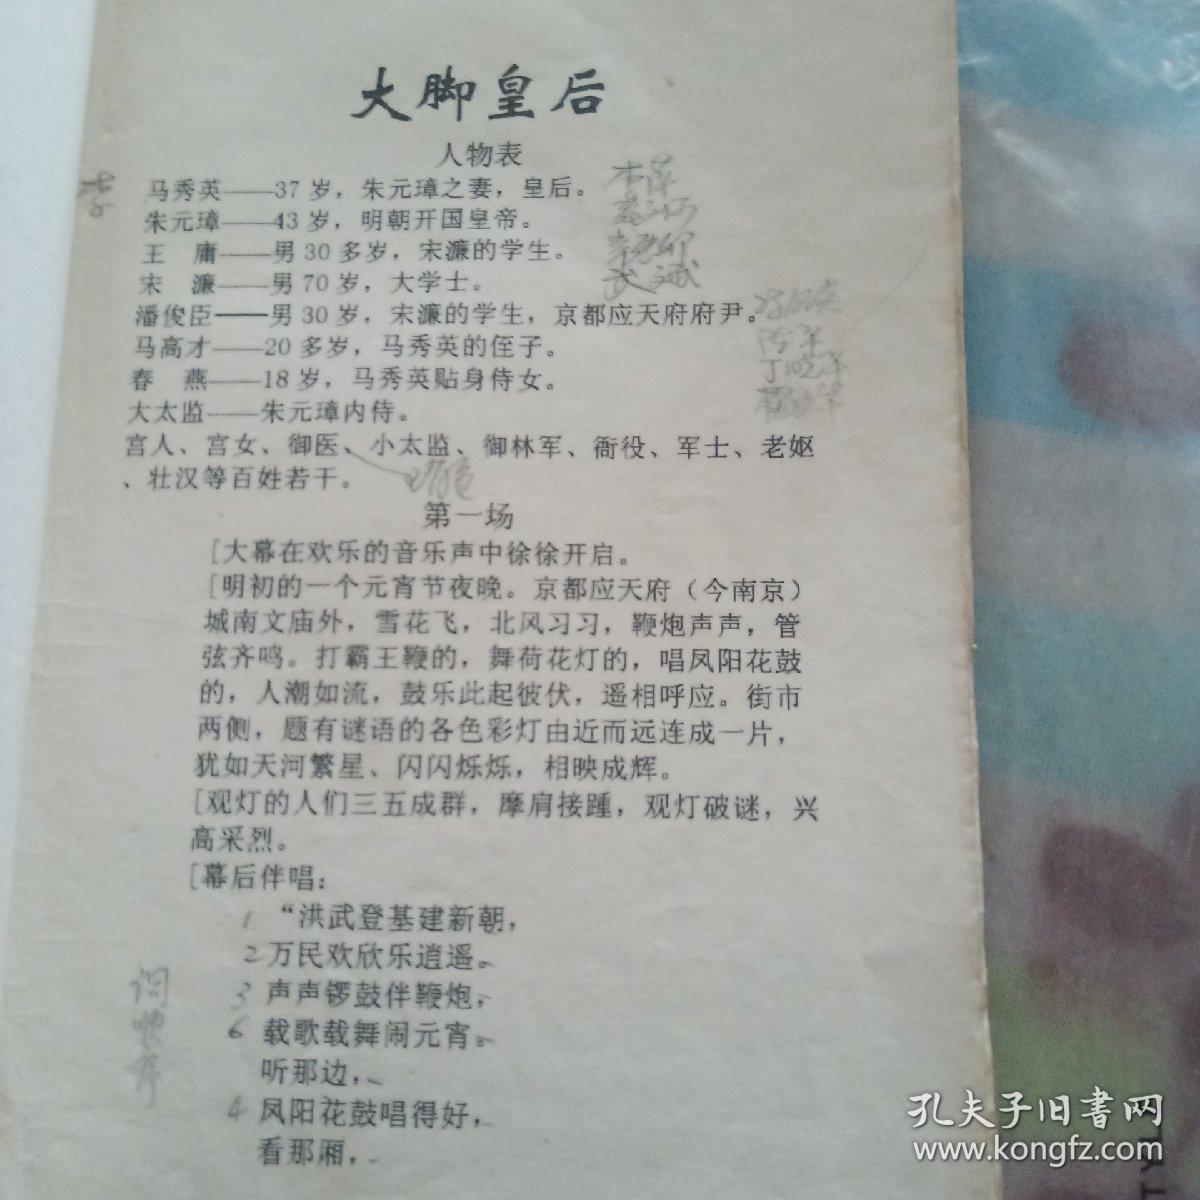 大脚皇后
人物表
马秀英——37岁，朱元璋之妻，皇后。
朱元璋——43岁，明朝开国皇帝。
王　庸——男30多岁，宋濂的学生。
宋　濂——男70岁，大学士。
潘俊臣——男30岁，宋濂的学生，京都应天府府尹。
马高才——20多岁，马秀英的侄子。
春　燕——18岁，马秀英贴身侍女。
大太监——朱元璋内侍。
宫人、宫女、御医、小太监、御林军、衙役、军士、老妪
、壮汉等百姓若干。
第一场
[大幕在欢乐的音乐声中徐徐开启。
[明初的一个元宵节夜晚。京都应天府（今南京）
城南文庙外，雪花飞，北风习习，鞭炮声声，管
弦齐鸣。打霸王鞭的，舞荷花灯的，唱凤阳花鼓
的，人潮如流，鼓乐此起彼伏，遥相呼应。街市
两侧，题有谜语的各色彩灯由近而远连成一片，
犹如天河繁星、闪闪烁烁，相映成辉。
[观灯的人们三五成群，摩肩接踵，观灯破谜，兴
高采烈。
[幕后伴唱：
1 “洪武登基建新朝，
2 万民欢欣乐逍遥。
3 声声锣鼓伴鞭炮，
6 载歌载舞闹元宵。
听那边，
4 凤阳花鼓唱得好，
看那厢，
孔夫子旧书网
www.kongfz.com